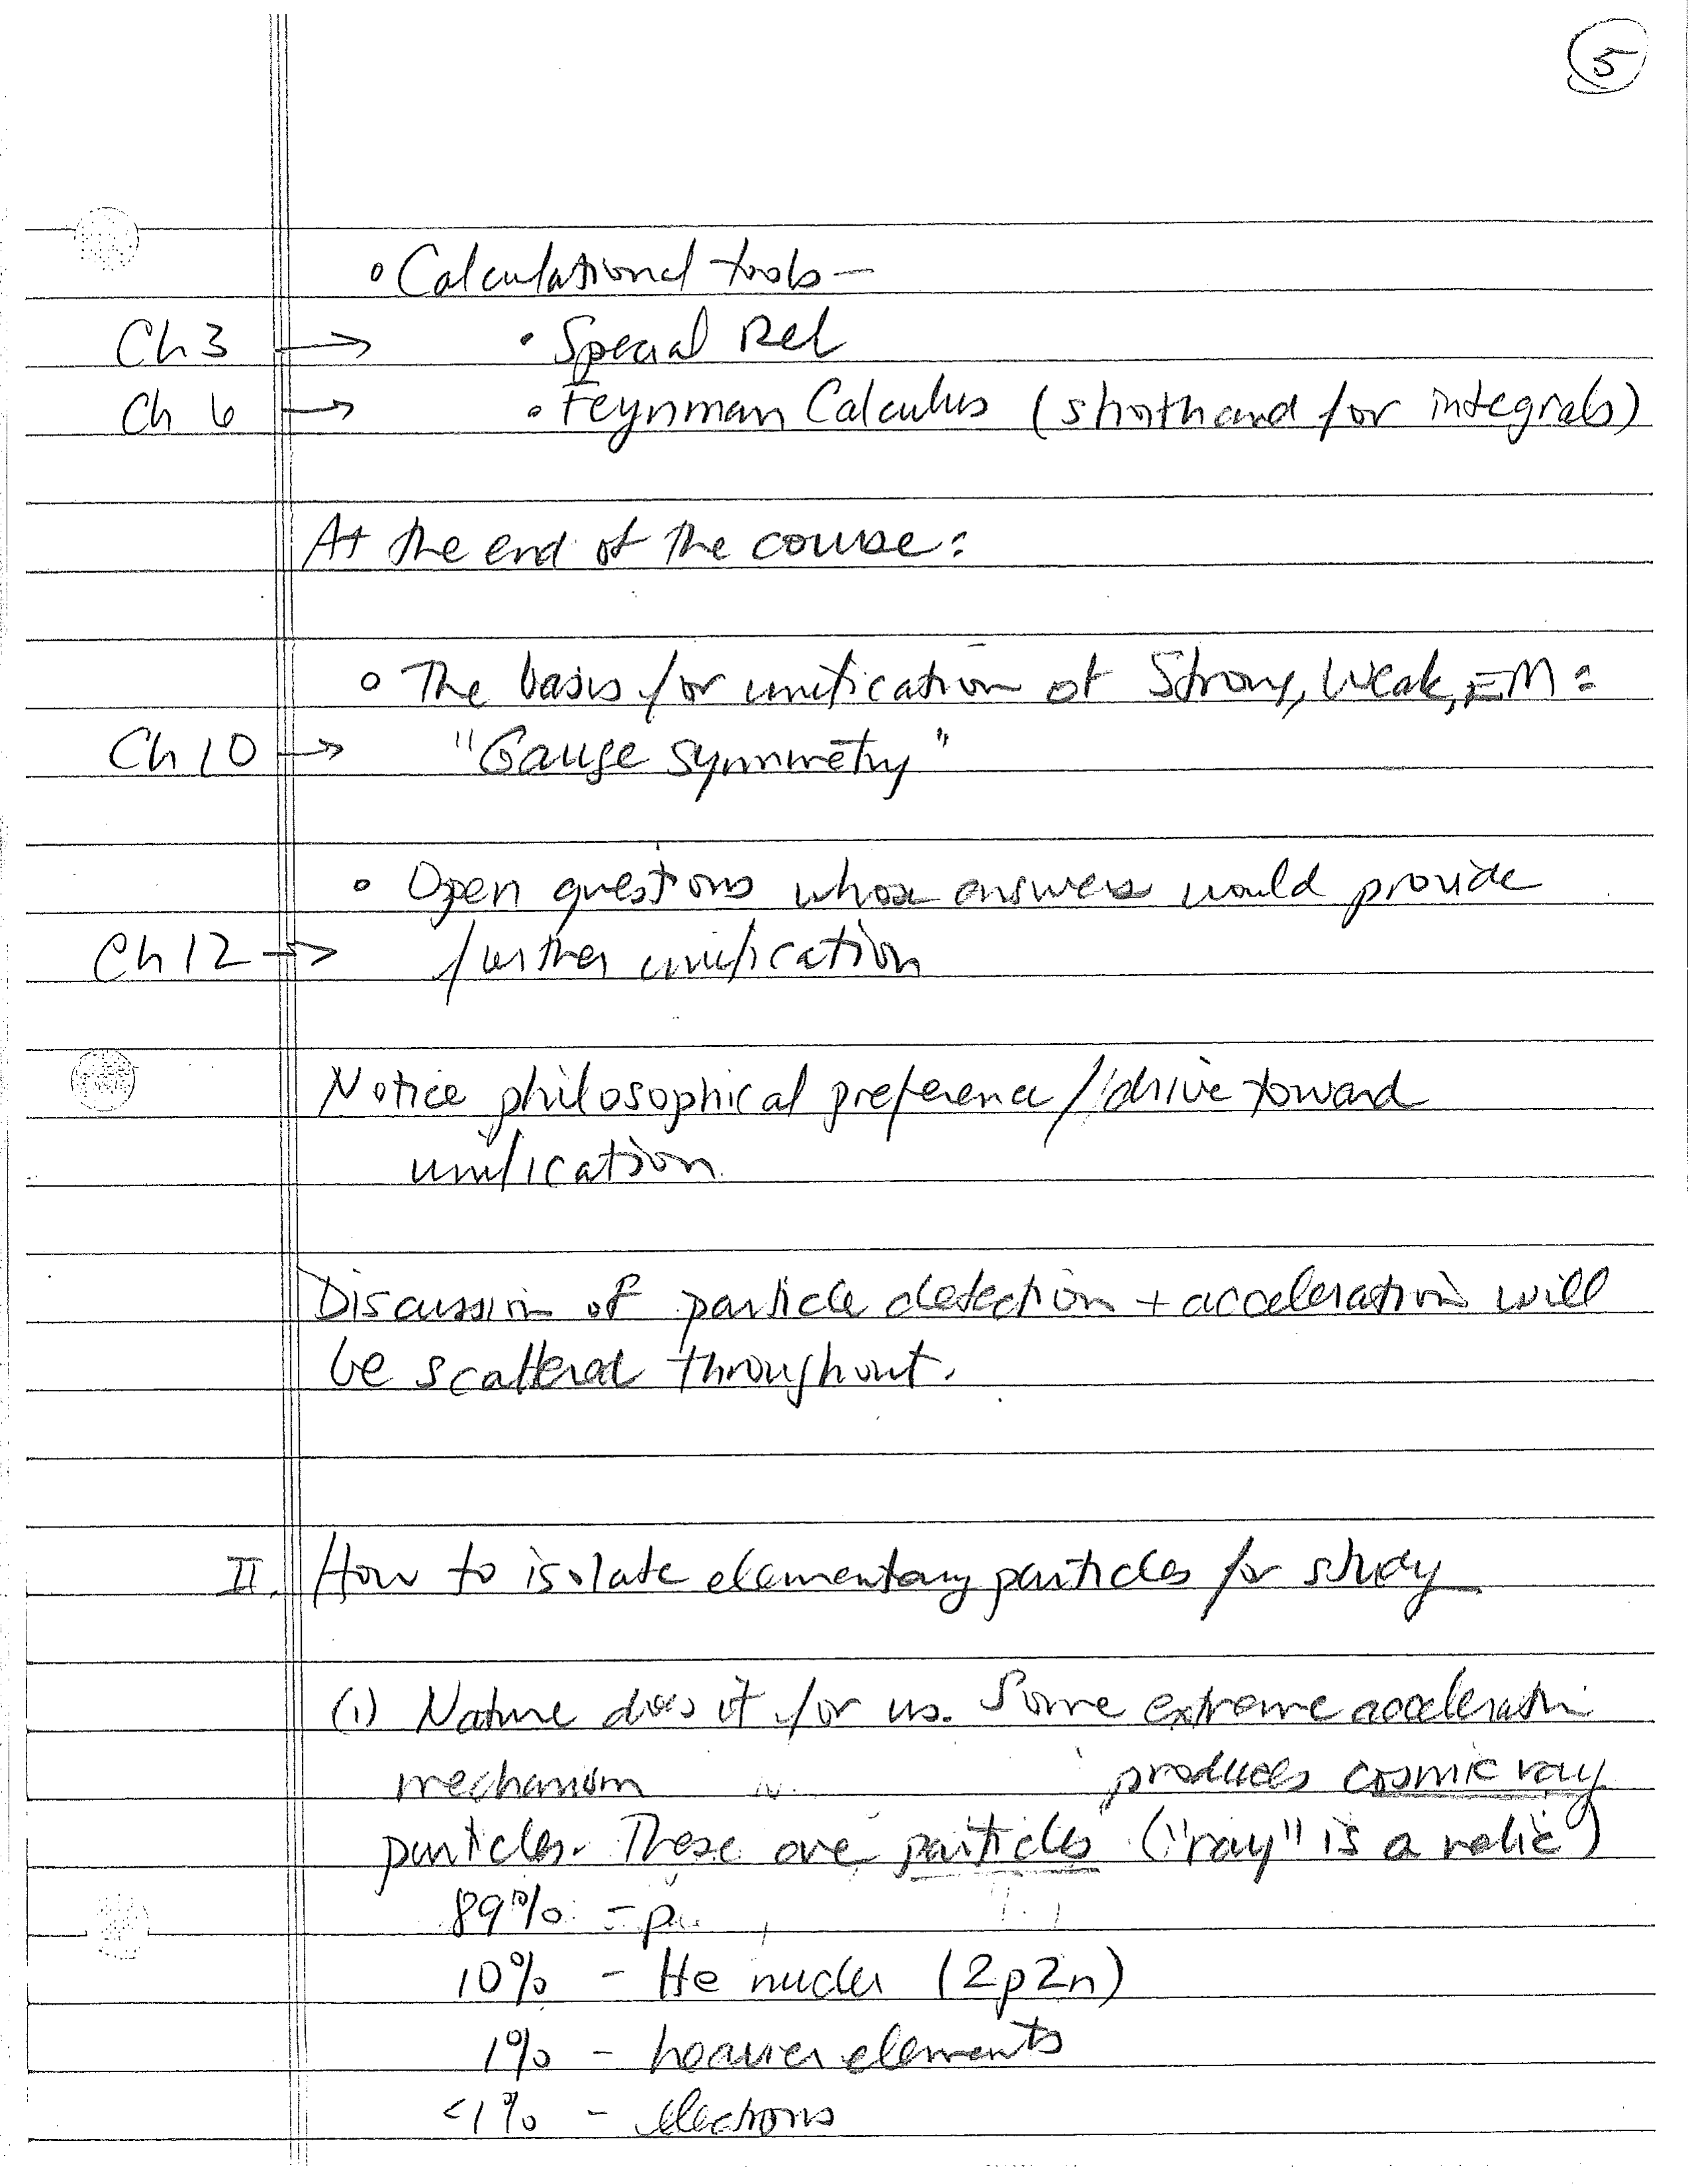 5
◦ Calculational tools —
Ch 3 → • Special Rel
Ch 6 → • Feynman Calculus (shorthand for integrals)
At the end of the course:
◦ The basis for unification of Strong, Weak, EM:
Ch 10 → "Gauge symmetry"
◦ Open questions whose answers would provide
Ch 12 → further unification
Notice philosophical preference/drive toward
unification.
Discussion of particle detection + acceleration will
be scattered throughout.
II. How to isolate elementary particles for study
(1) Nature does it for us. Some extreme acceleration
mechanism produces cosmic ray
particles. These are particles ("ray" is a relic)
89% - p
10% - He nuclei (2p2n)
1% - heavier elements
<1% - electrons